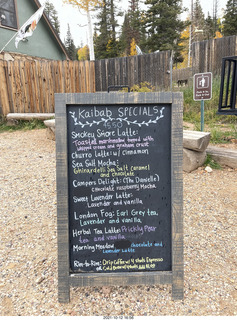 Kaibab SPECIALS
Smokey S'more Latte:
Toasted marshmallow
whipped cream and graham crust
Churro Latte: w/ Cinnamon
Sea Salt Mocha:
Ghirardelli Sea Salt Caramel
and chocolate
Campers Delight: (The Danielle)
Chocolate raspberry Mocha
Sweet Lavender Latte:
Lavender and vanilla
London Fog: Earl Grey tea,
Lavender and vanilla
Herbal Tea Latte: Prickly Pear
tea and vanilla
Morning Meadow: chocolate and
Lavender Latte
Rim-to-Rim: Drip Coffee w/ 4 shots Espresso